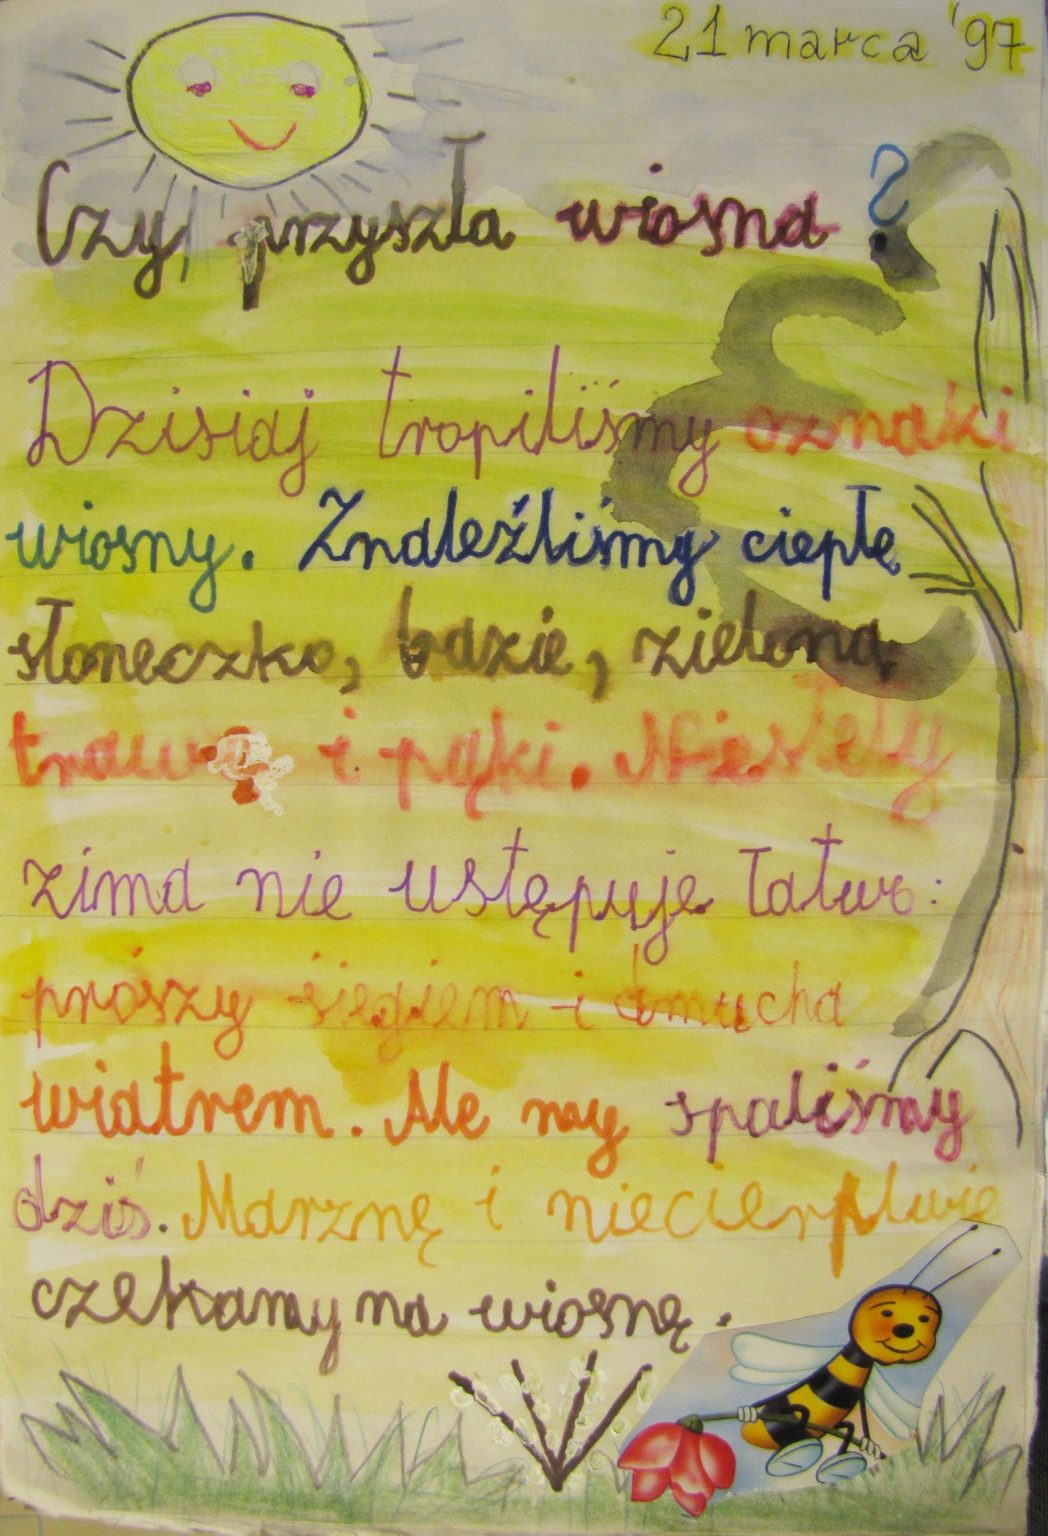 21 marca '97
Czy przyszła wiosna?
Dzisiaj tropiliśmy oznaki
wiosny. Znaleźliśmy ciepłę
słoneczko, bazie, zieloną
trawę i pąki. Niestety
zima nie ustępuje łatwo:
prószy śięgiem i dmucha
wiatrem. Ale my spaliśmy
dziś. Marznę i niecierpliwie
czekamy na wiosnę.